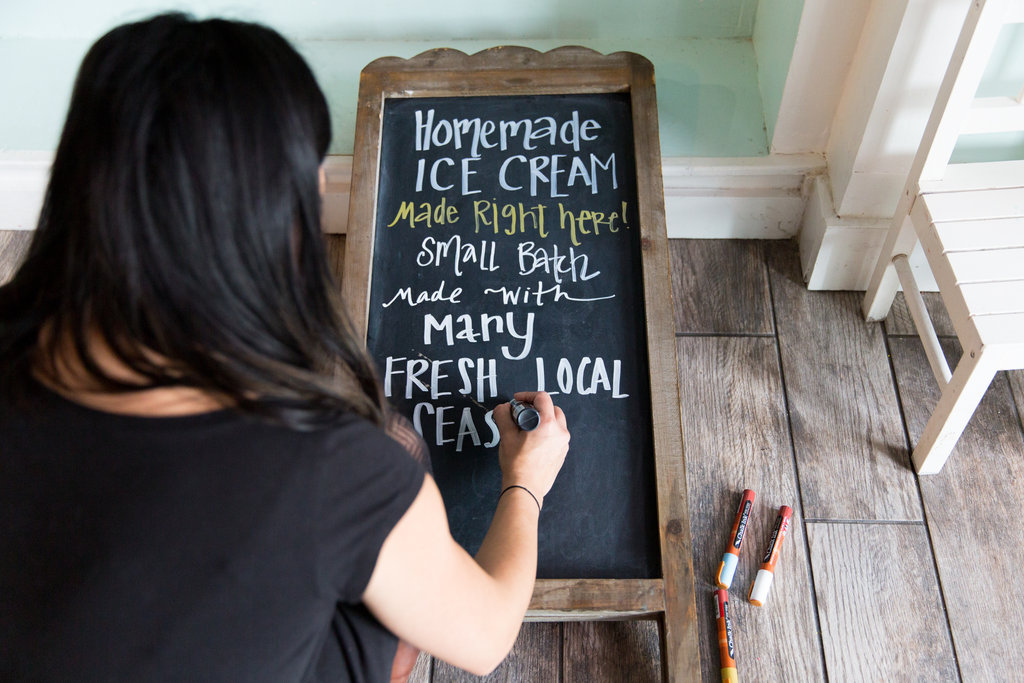 Homemade
ICE CREAM
Made Right here!
Small Batch
Made with
Many
FRESH LOCAL
SEAS